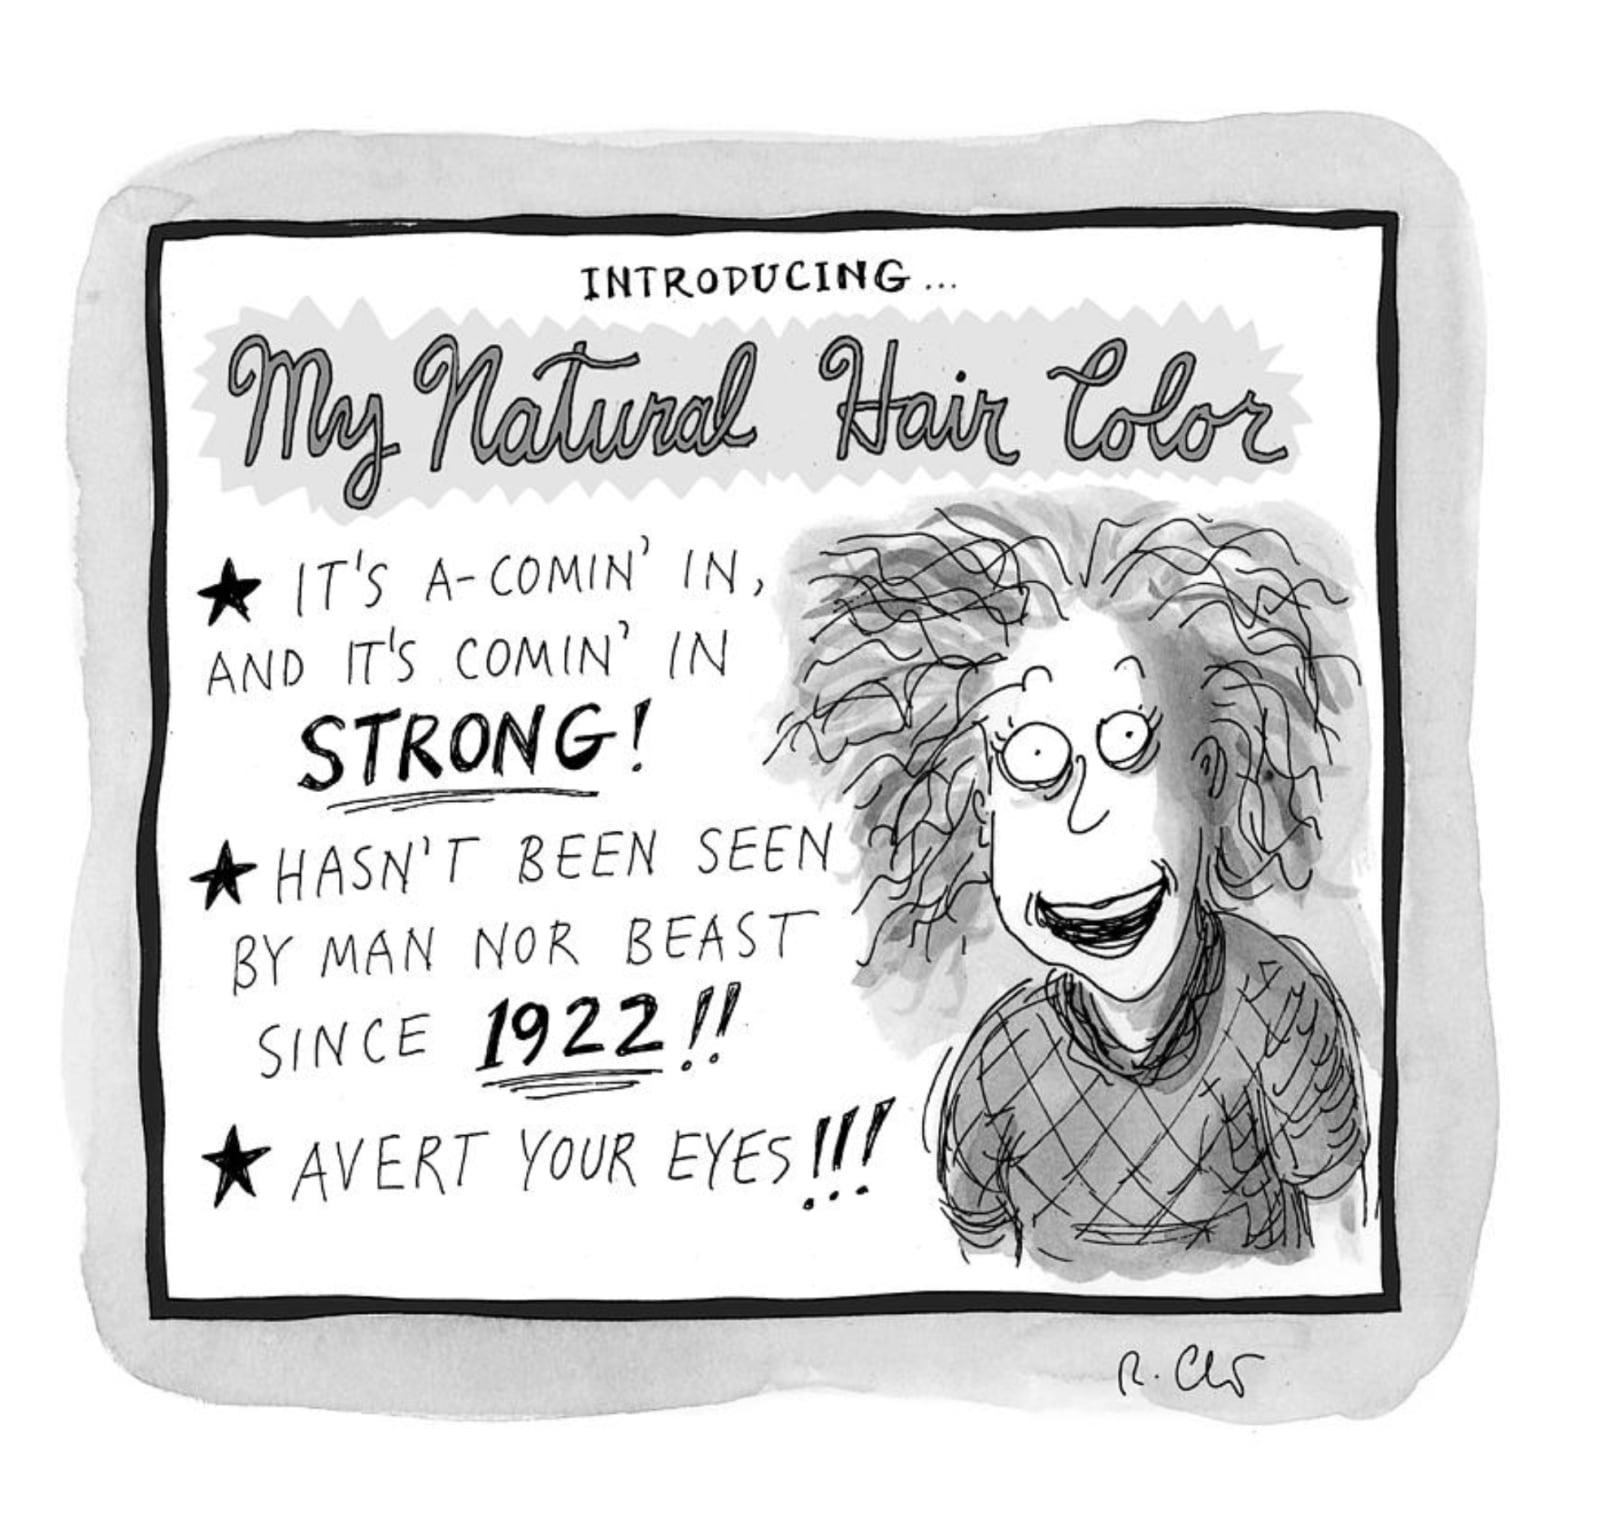 INTRODUCING...
My Natural Hair Color
★ IT'S A-COMIN' IN,
AND IT'S COMIN' IN
STRONG!
★ HASN'T BEEN SEEN
BY MAN NOR BEAST
SINCE 1922!!
★ AVERT YOUR EYES!!!
R. Chs